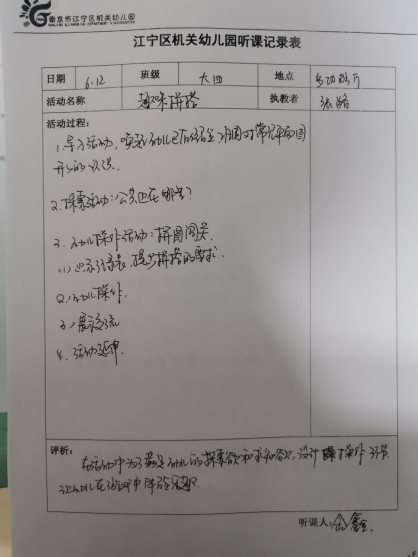 南京市江宁区机关幼儿园
江宁区机关幼儿园听课记录表
日期 6.12 班级 大四 地点 多功能厅
活动名称 趣味拼搭 执教者 张璐
活动过程：
1.导入活动，唤起幼儿已有经验，对常见平面图
形的认识。
2.探索活动：公共边在哪里？
3.幼儿操作活动：拼图闯关
(1)出示记录表，提出拼搭的要求.
(2)幼儿操作.
(3)展示交流
4.活动延伸.
评析：
在活动中为了满足幼儿的探索欲和求知欲，设计了操作环节
让幼儿在游戏中体验
听课人：金鑫